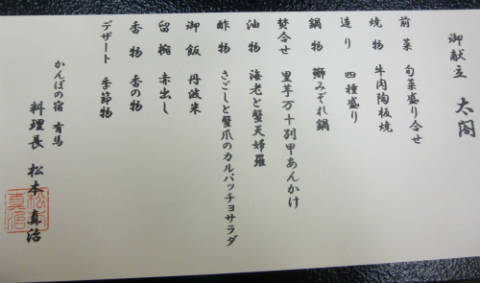 御献立　太閤
前菜　旬菜盛り合せ
焼物　牛肉陶板焼
造り　四種盛り
鍋物　鰤みぞれ鍋
焚合せ　里芋万十別甲あんかけ
油物　海老と蟹天婦羅
酢物　さごしと蟹爪のカルパッチョサラダ
御飯　丹波米
留椀　赤出し
香物　香の物
デザート　季節物
かんぽの宿　有馬
料理長　松本　真治